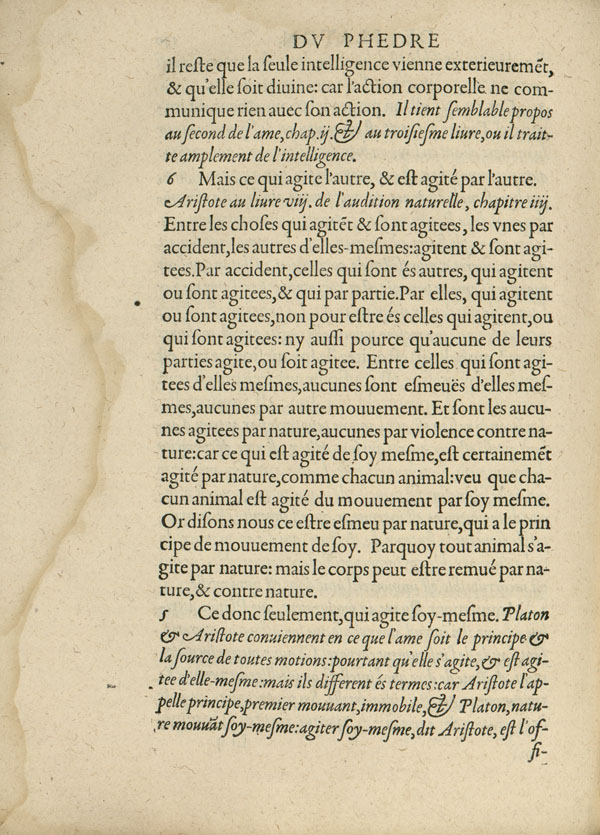 DV PHEDRE
il reste que la seule intelligence vienne exterieuremēt,
& qu'elle soit diuine: car l'action corporelle ne com-
munique rien auec son action. Il tient semblable propos
au second de l'ame, chap. ij. & au troisiesme liure, ou il trait-
te amplement de l'intelligence.
6 Mais ce qui agite l'autre, & est agité par l'autre.
Aristote au liure viij. de l'audition naturelle, chapitre iiij.
Entre les choses qui agitēt & sont agitees, les vnes par
accident, les autres d'elles-mesmes: agitent & sont agi-
tees. Par accident, celles qui sont és autres, qui agitent
ou sont agitees, & qui par partie. Par elles, qui agitent
ou sont agitees, non pour estre és celles qui agitent, ou
qui sont agitees: ny aussi pource qu'aucune de leurs
parties agite, ou soit agitee. Entre celles qui sont agi-
tees d'elles mesmes, aucunes sont esmeuës d'elles mes-
mes, aucunes par autre mouuement. Et sont les aucu-
nes agitees par nature, aucunes par violence contre na-
ture: car ce qui est agité de soy mesme, est certainemēt
agité par nature, comme chacun animal: veu que cha-
cun animal est agité du mouuement par soy mesme.
Or disons nous ce estre esmeu par nature, qui a le prin
cipe de mouuement de soy. Parquoy tout animal s'a-
gite par nature: mais le corps peut estre remué par na-
ture, & contre nature.
5 Ce donc seulement, qui agite soy-mesme. Platon
& Aristote conuiennent en ce que l'ame soit le principe &
la source de toutes motions: pourtant qu'elle s'agite, & est agi-
tee d'elle-mesme: mais ils different és termes: car Aristote l'ap-
pelle principe, premier mouuant, immobile, & Platon, natu-
re mouuāt soy-mesme: agiter soy-mesme, dit Aristote, est l'of-
fi-